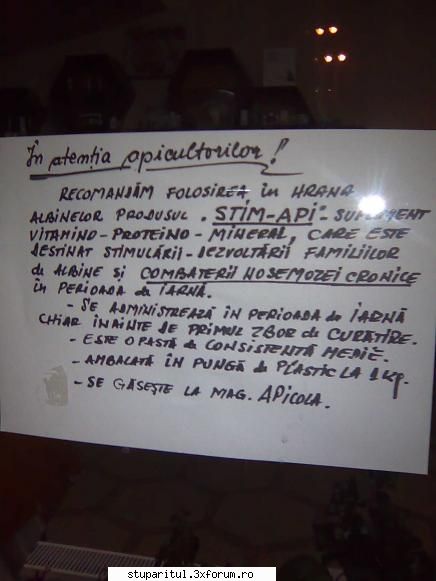 În atenția apicultorilor!
RECOMANDĂM FOLOSIREA, în HRANA
ALBINELOR PRODUSUL "STIM-API"- SUPLIMENT
VITAMINO-PROTEINO-MINERAL, CARE ESTE
DESTINAT STIMULĂRII-DEZVOLTĂRII FAMILIILOR
de ALBINE și COMBATERII NOSEMOZEI CRONICE
în PERIOADA de IARNĂ.
- SE ADMINISTREAZĂ ÎN PERIOADA de IARNĂ
CHIAR ÎNAINTE DE PRIMUL ZBOR de CURĂȚIRE.
- ESTE O PASTĂ de CONSISTENȚĂ MEDIE.
- AMBALATĂ ÎN PUNGĂ de PLASTIC LA 1 Kg.
- SE GĂSEȘTE LA MAG. APICOLA.
stuparitul.3xforum.ro